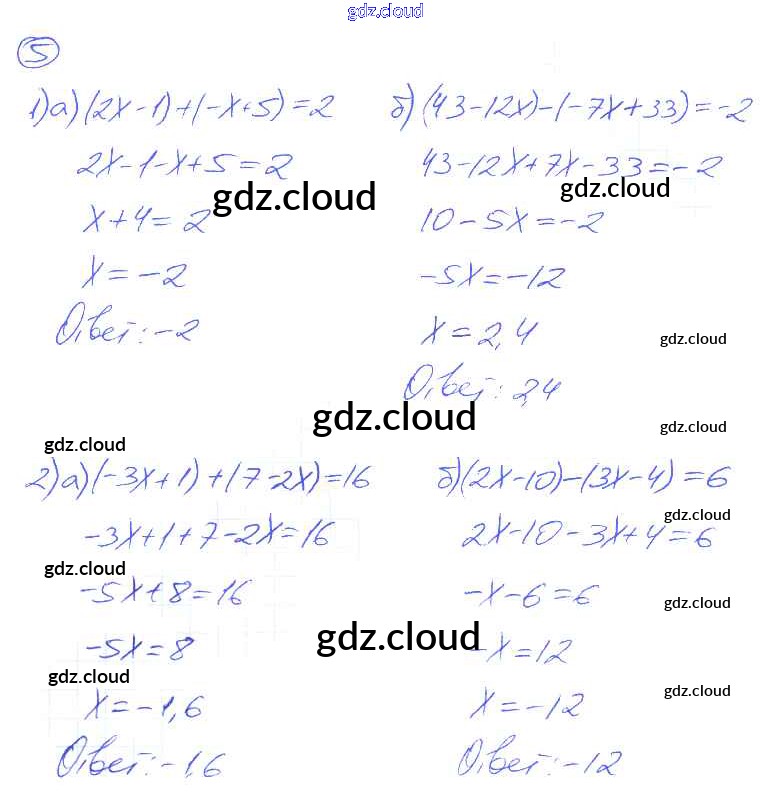 gdz.cloud
5
1) а) (2x-1)+(-x+5)=2
2x-1-x+5=2
gdz.cloud
x+4=2
x=-2
Ответ: -2
б) (43-12x)-(-7x+33)=-2
43-12x+7x-33=-2
gdz.cloud
10-5x=-2
-5x=-12
x=2,4
gdz.cloud
Ответ: 2,4
gdz.cloud
gdz.cloud
gdz.cloud
2) а) (-3x+1)+(7-2x)=16
-3x+1+7-2x=16
gdz.cloud
-5x+8=16
-5x=8
gdz.cloud
gdz.cloud
x=-1,6
Ответ: -1,6
б) (2x-10)-(3x-4)=6
gdz.cloud
2x-10-3x+4=6
-x-6=6
gdz.cloud
-x=12
gdz.cloud
x=-12
Ответ: -12